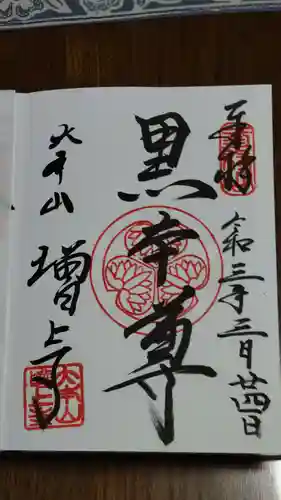 奉拝
令和三年三月廿四日
黒本尊
大本山
増上寺